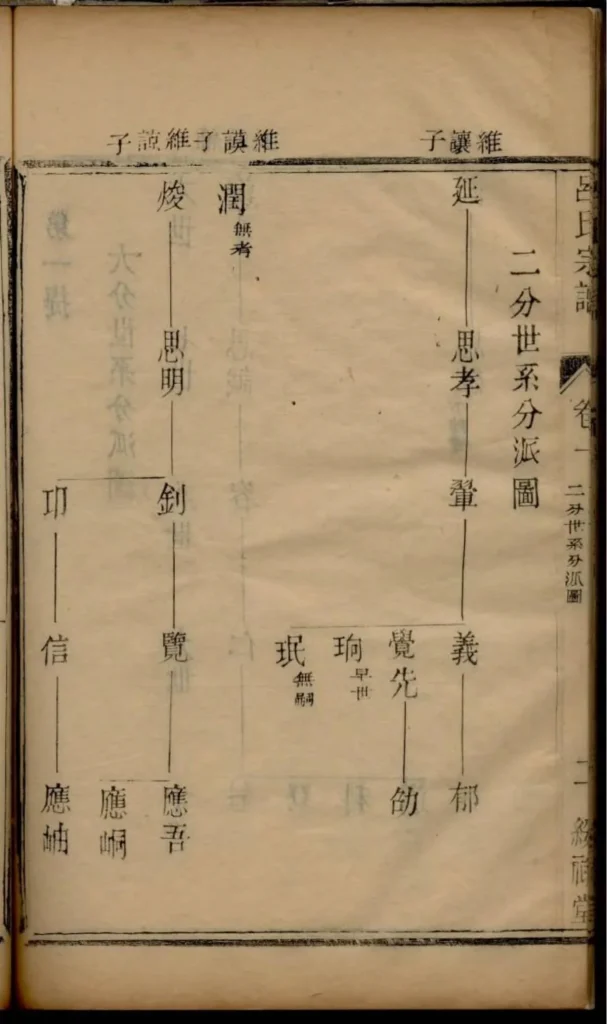 呂氏宗譜
卷一
二分世系分派圖
二
綏福堂
二分世系分派圖
維讓子
延
思孝
鞏
義
郁
覺先
劭
珣 早世
珉 無嗣
維謨子
潤 無考
維諒子
焌
思明
釗
覽
應吾
應峒
卭
信
應岫